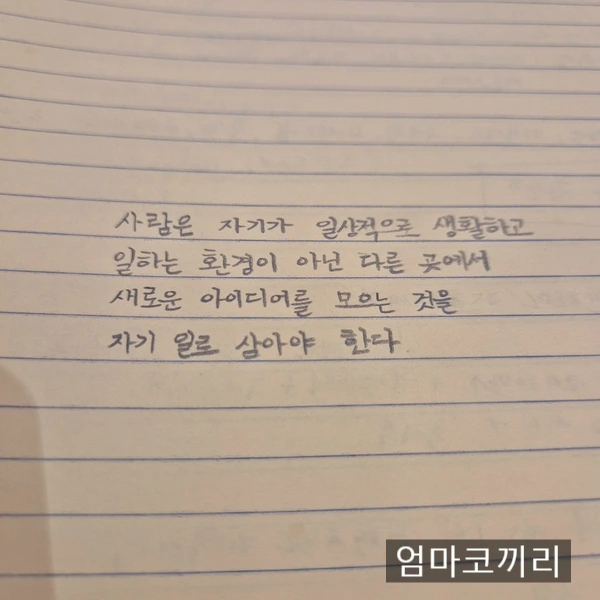 사람은 자기가 일상적으로 생활하고
일하는 환경이 아닌 다른 곳에서
새로운 아이디어를 모으는 것을
자기 일로 삼아야 한다.
엄마코끼리